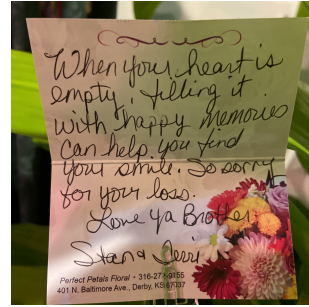 When your heart is
empty, filling it
with happy memories
can help you find
your smile. So sorry
for your loss.
Love ya Brother
Stan & Terri
Perfect Petals Floral • 316-27
401 N. Baltimore Ave., Derby, KS 67037